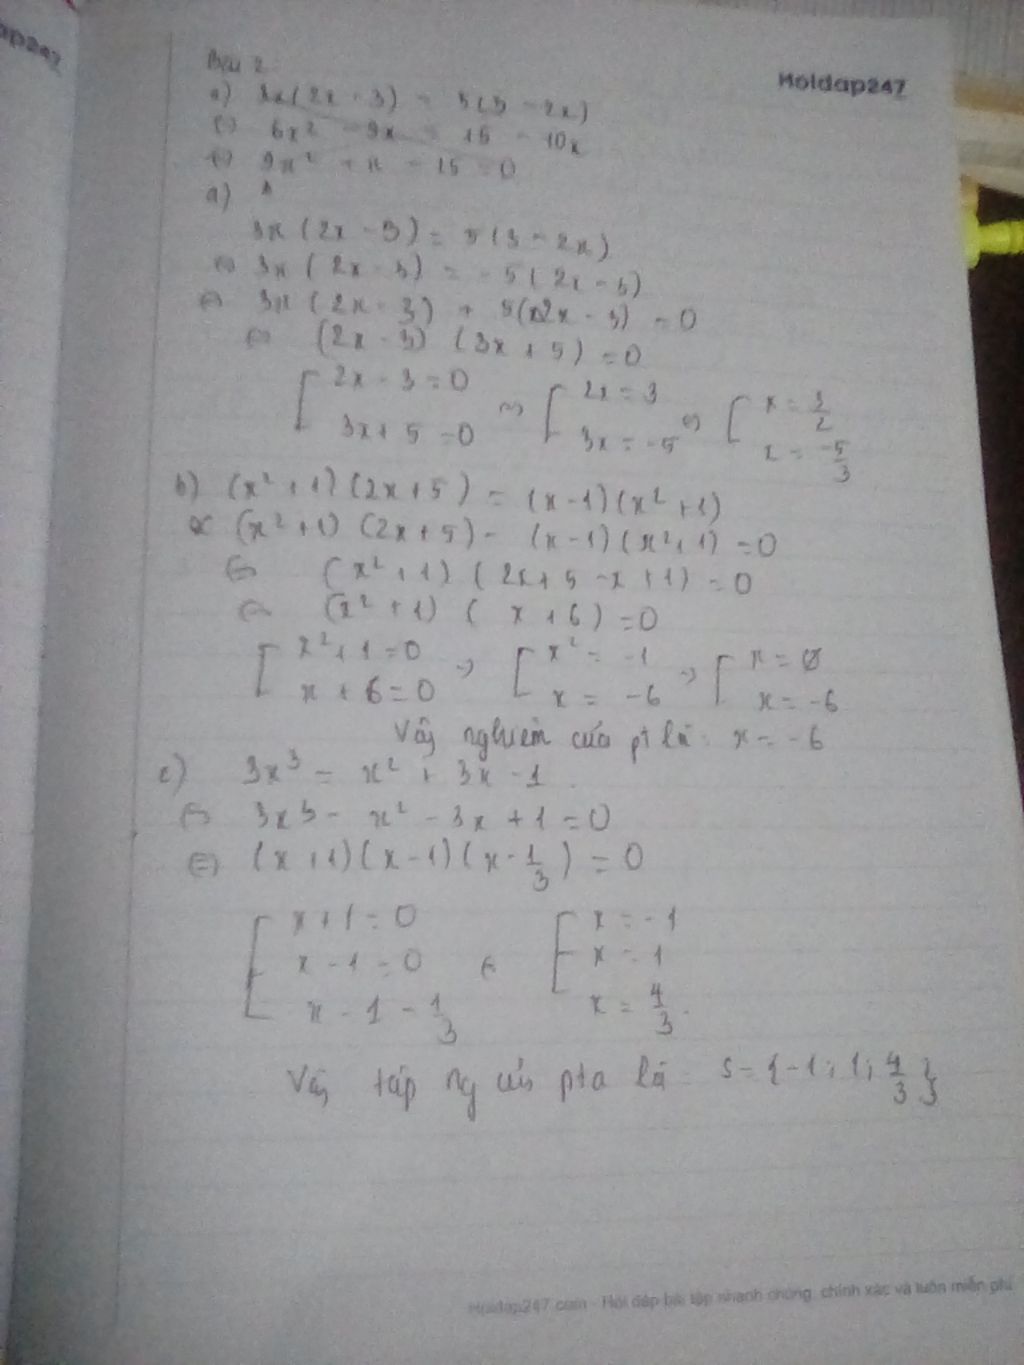 ap247
Holdap247
Bài 2
a) 3x(2x - 3) = 5(3 - 2x)
(=) 6x² - 9x = 15 - 10x
(=) 9x² + x - 15 = 0
a)
3x(2x - 3) = 5(3 - 2x)
(=) 3x(2x - 3) = -5(2x - 3)
(=) 3x(2x - 3) + 5(2x - 3) = 0
(=) (2x - 3)(3x + 5) = 0
[ 2x - 3 = 0 (=) [ 2x = 3 (=) [ x = 3/2
3x + 5 = 0 3x = -5 x = -5/3
b) (x² + 1)(2x + 5) = (x - 1)(x² + 1)
(x² + 1)(2x + 5) - (x - 1)(x² + 1) = 0
(=) (x² + 1)(2x + 5 - x + 1) = 0
(=) (x² + 1)( x + 6) = 0
[ x² + 1 = 0 => [ x² = -1 => [ x = Ø
x + 6 = 0 x = -6 x = -6
Vây nghiệm của pt là: x = -6
c) 3x³ = x² + 3x - 1
(=) 3x³ - x² - 3x + 1 = 0
(=) (x + 1)(x - 1)(x - 1/3) = 0
[ x + 1 = 0 [ x = -1
x - 1 = 0 (=) x = 1
x - 1 - 1/3 x = 4/3.
Vây tâp ng của pt là S = {-1; 1; 4/3}
Holdap247.com - Hỏi đáp bài tập nhanh chóng, chính xác và luôn miễn phí